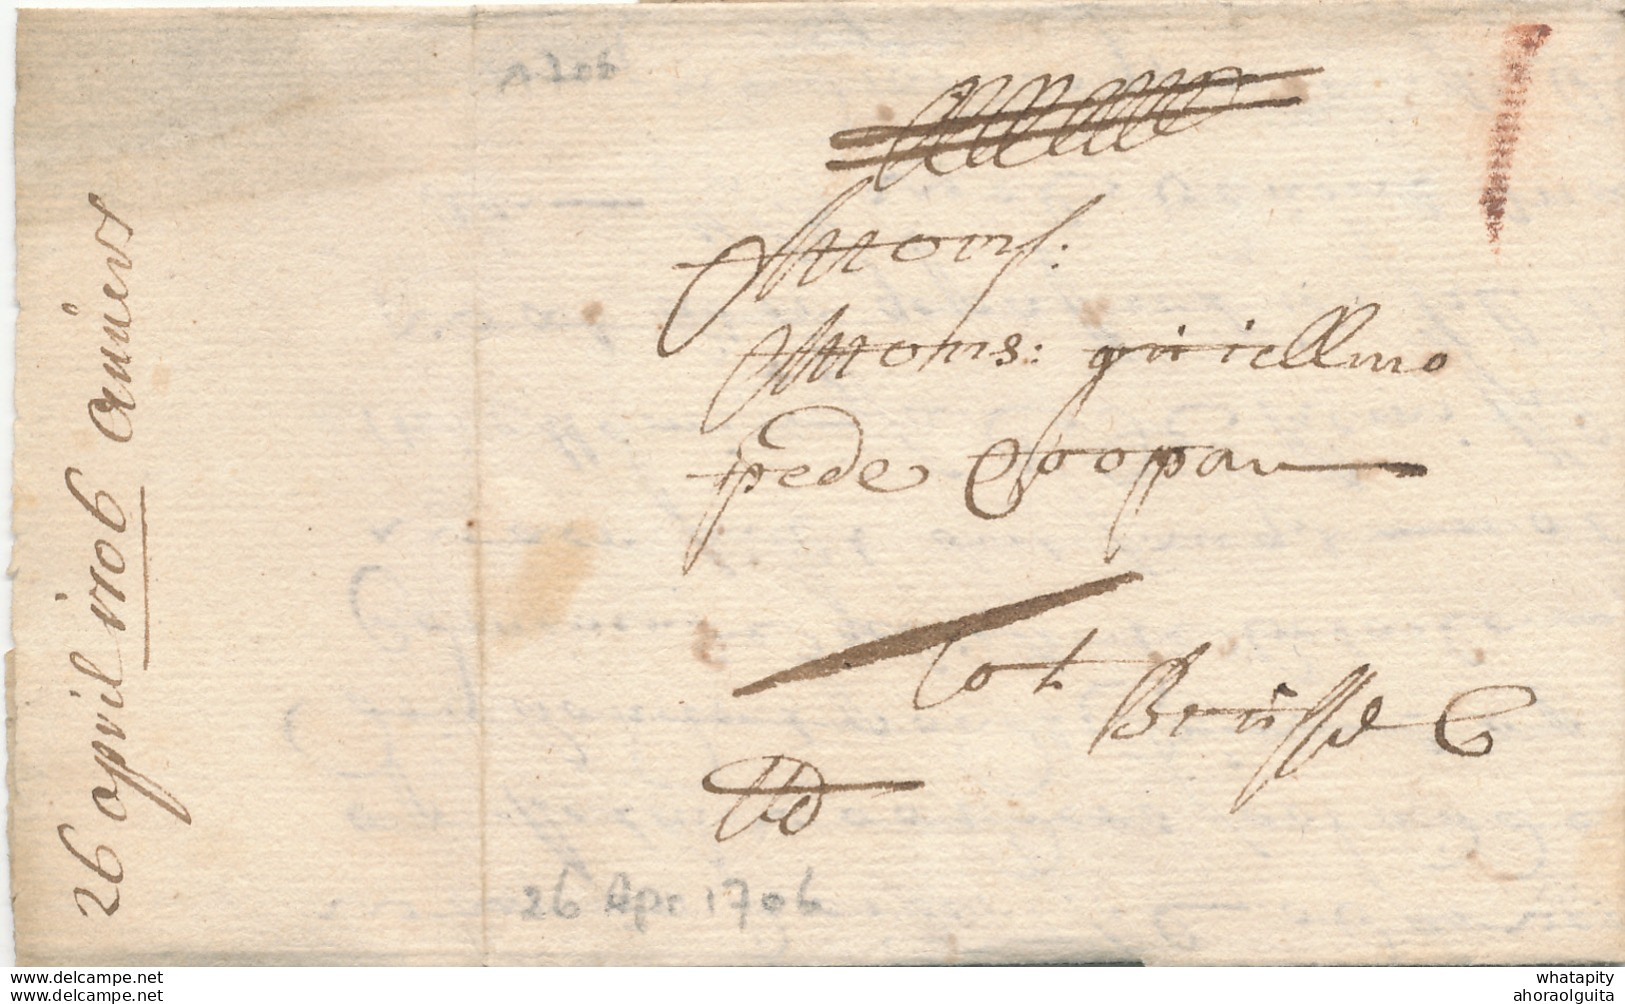 26 april 1706 Anvers
A. 706
Mons.
Mons: guiellmo
pede Coopan
tot
Brüssel
26 Apr 1706
www.delcampe.net
www.delcampe.net
whatapity
ahoraolguita